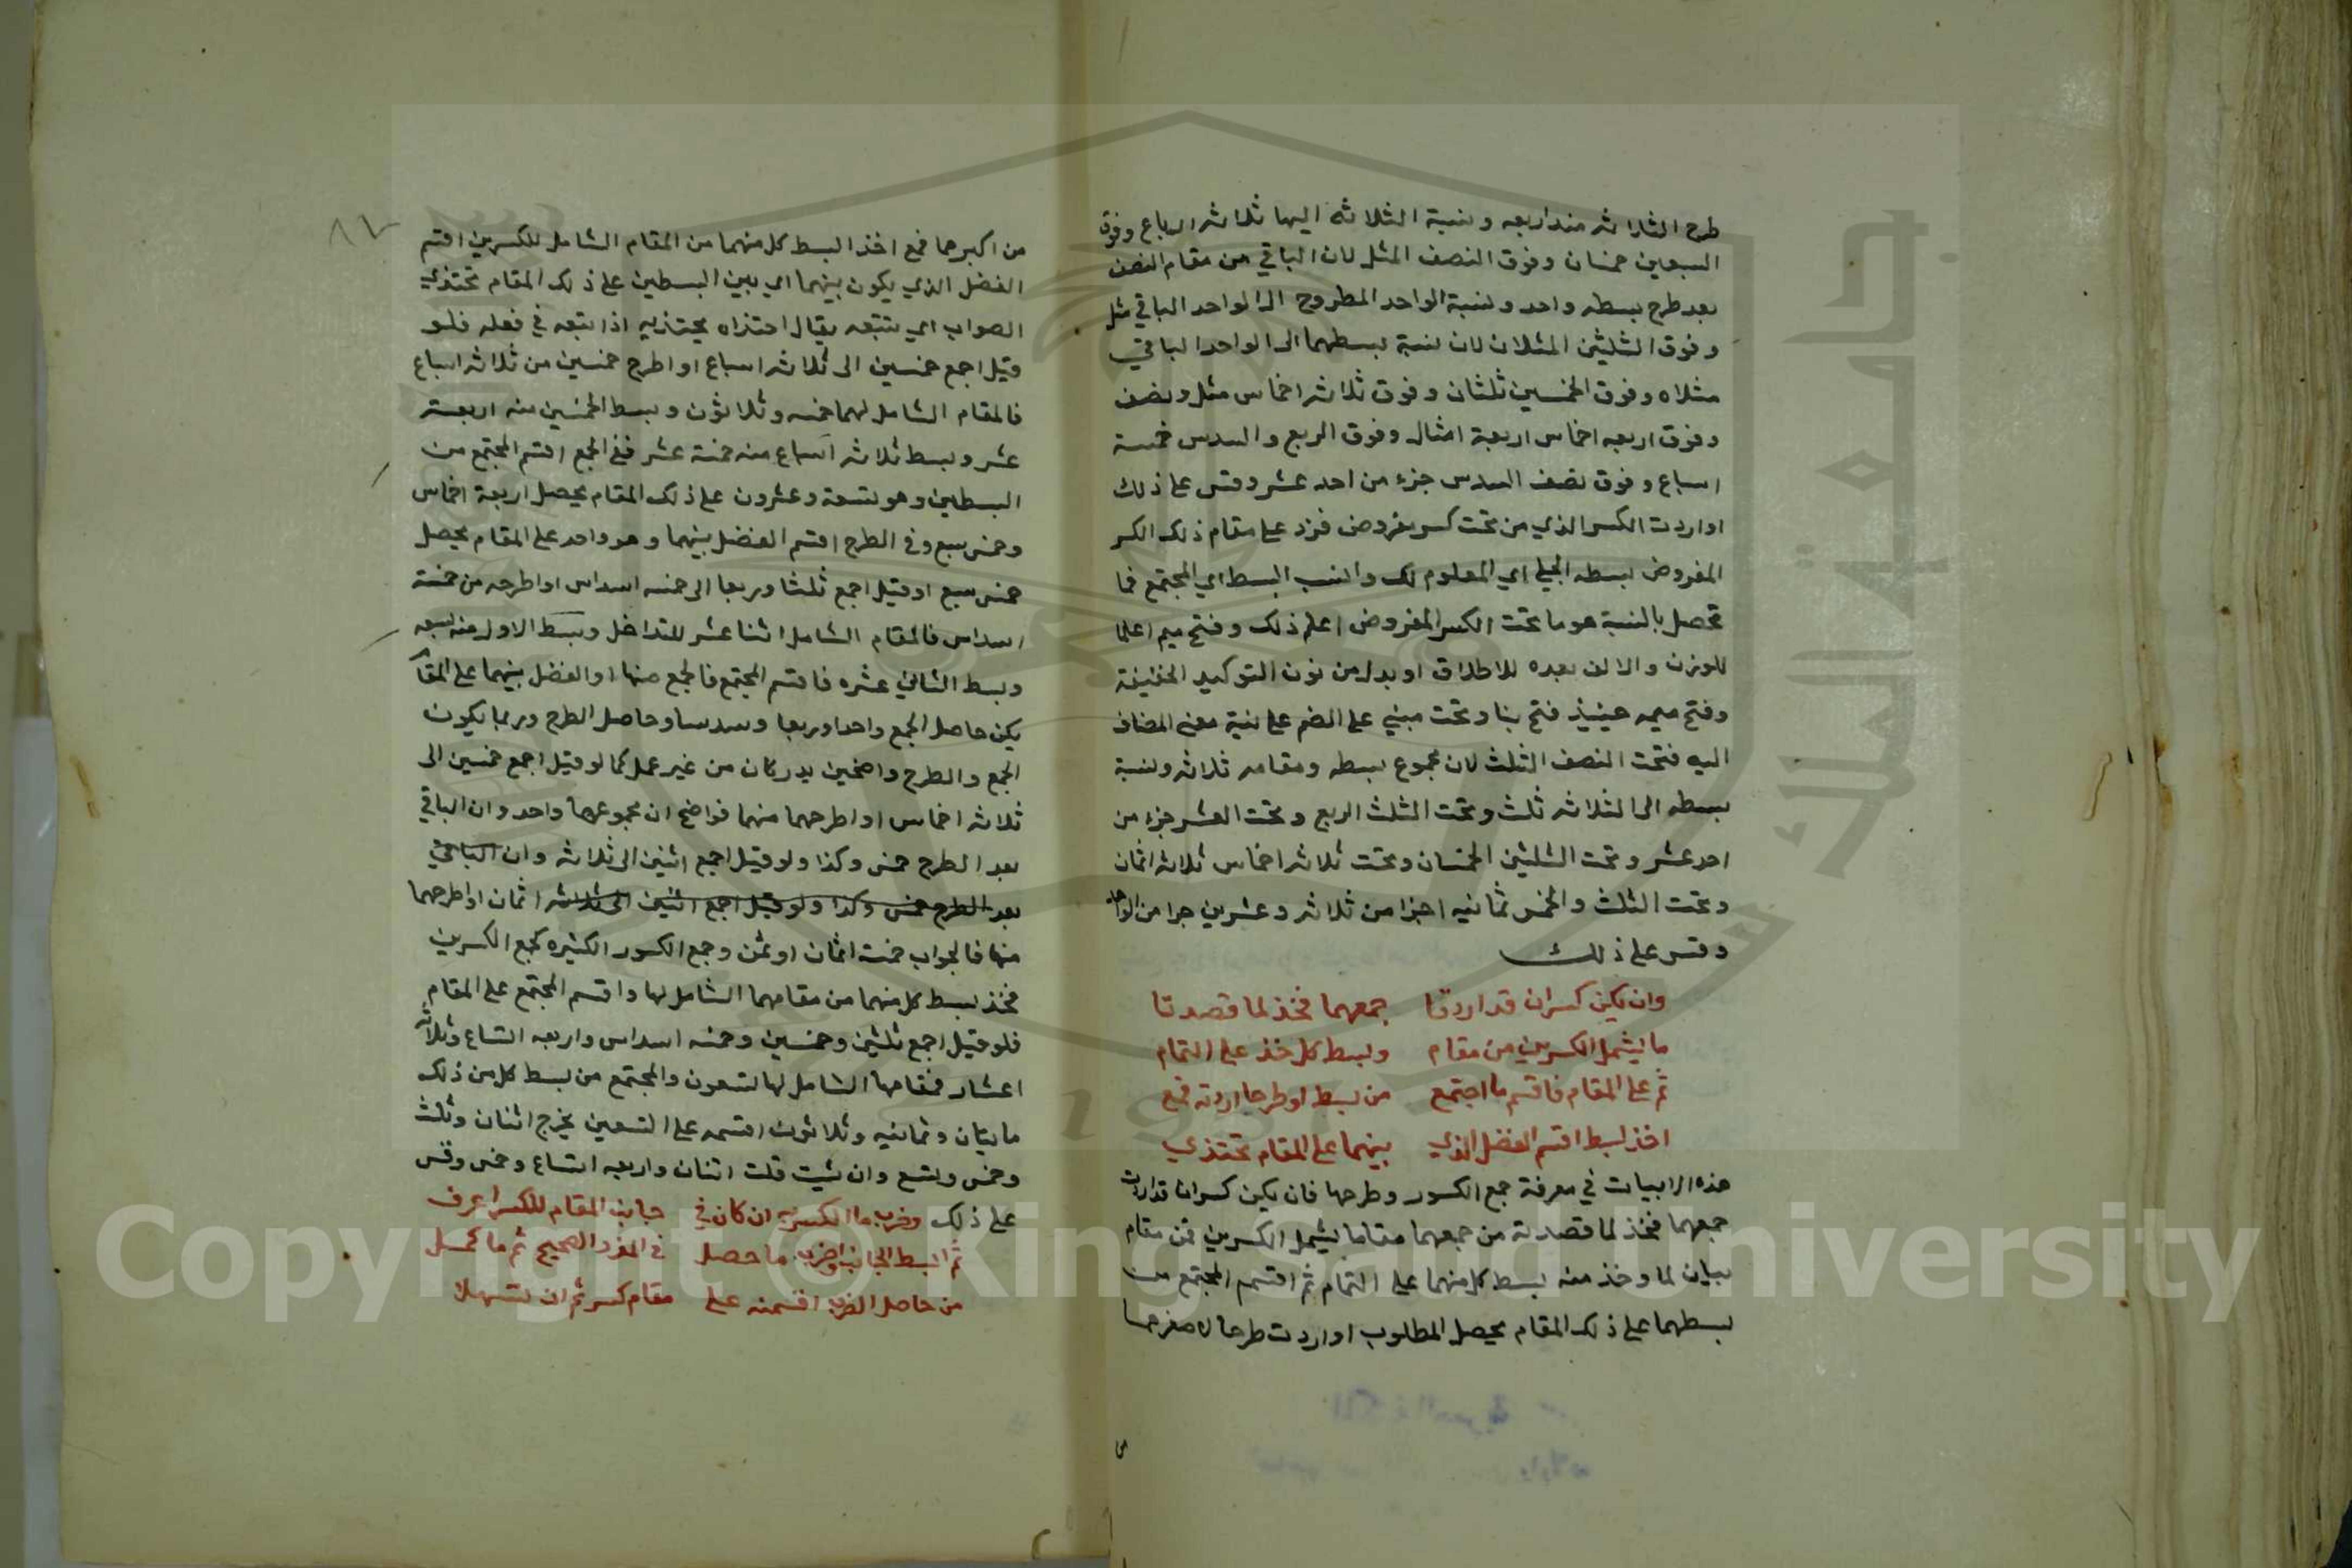 طرح الثلاثه منه اربعه ونسبة الثلاثة اليها ثلاثه ارباع وفوق
السبعين خمسان وفوق النصف المثل لان الباقي من مقام النصف
بعد طرح بسطه واحد ونسبة الواحد المطروح الى الواحد الباقي مثل
وفوق الثلثين المثلان لان نسبة بسطهما الى الواحد الباقي
مثلاه وفوق الخمسين ثلثان وفوق ثلاثه اخماس مثل ونصف
وفوق اربعه اخماس اربعة امثال وفوق الربع والسدس خمسة
اسباع وفوق نصف السدس جزء من احد عشر وقس على ذلك
او اردت الكسر الذي من تحت كسر مفروض فزد على مقام ذلك الكسر
المفروض بسطه الجلي اي المعلوم لك وانسب البسط الي المجتمع فما
تحصل بالنسبة هو ما تحت الكسر المفروض اعلم ذلك وفتح ميم اعلما
للوزن والالف بعده للاطلاق او بدل من نون التوكيد الخفيفة
وفتح ميمه حينيذ فتح بنا وتحت مبني على الضم على نية معنى المضاف
اليه فتحت النصف الثلث لان مجموع بسطه ومقامه ثلاثه ونسبة
بسطه الى الثلاثه ثلث وتحت الثلث الربع وتحت العشر جزء من
احد عشر وتحت الثلثين الخمسان وتحت ثلاثه اخماس ثلاثه اثمان
وتحت الثلث والخمس ثمانيه اجزا من ثلاثه وعشرين جزا من الواحد
وقس على ذلك
وان يكن كسران قد اردتا جمعهما فخذ لما قصدتا
ما يشمل الكسرين من مقام وبسط كل خذ على التمام
ثم على المقام فاقسم ما اجتمع من بسط او طرحا اردته فمع
اخذ لبسط اقسم الفضل الذي بينهما على المقام تحتذي
هذه الابيات في معرفة جمع الكسور وطرحها فان يكن كسران قد اردت
جمعهما فخذ لما قصدته من جمعهما مقاما يشمل الكسرين فمن مقام
بيان لما وخذ منه بسط كل منهما على التمام ثم اقسم المجتمع من
بسطهما على ذلك المقام يحصل المطلوب او اردت طرحا لاصغرهما
من
٨٧
من اكبرهما فمع اخذ البسط كل منهما من المقام الشامل للكسرين اقسم
الفضل الذي يكون بينهما اي بين البسطين على ذلك المقام تحتذي
الصواب اي تتبعه يقال احتذاه يحتذيه اذا تبعه في فعله فلو
قيل اجمع خمسين الى ثلاثه اسباع او اطرح خمسين من ثلاثه اسباع
فالمقام الشامل لهما خمسه وثلاثون وبسط الخمسين منه اربعة
عشر وبسط ثلاثه اسباع منه خمسة عشر ففي الجمع اقسم المجتمع من
البسطين وهو تسعة وعشرون على ذلك المقام يحصل اربعة اخماس
وخمس سبع وفي الطرح اقسم الفضل بينهما وهو واحد على المقام يحصل
خمس سبع او قيل اجمع ثلثا وربعا الى خمسه اسداس او اطرحه من خمسة
اسداس فالمقام الشامل اثنا عشر للتداخل وبسط الاول منه سبعه
وبسط الثاني عشره فاقسم المجتمع فالجمع منها او الفضل بينهما على المقام
يكن حاصل الجمع واحدا وربعا وسدسا وحاصل الطرح وربما يكون
الجمع والطرح واضحين يدركان من غير عمل كما لو قيل اجمع خمسين الى
ثلاثه اخماس او اطرحهما منهما فواضح ان مجموعهما واحد وان الباقي
بعد الطرح خمس وكذا ولو قيل اجمع اثنين الى ثلاثه وان الباقي
بعد الطرح خمس وكذا ولو قيل اجمع اثنين الى ثلاثه اثمان او اطرحهما
منها فالجواب خمسة اثمان او ثمن وجمع الكسور الكثيره كجمع الكسرين
فخذ بسط كل منهما من مقامهما الشامل لها واقسم المجتمع على المقام
فلو قيل اجمع ثلثين وخمسين وخمسه اسداس واربعه اتساع وثلاثه
اعشار فمقامها الشامل لها تسعون والمجتمع من بسط كل من ذلك
مايتان وثمانيه وثلاثون اقسمه على التسعين يخرج اثنان وثلث
وخمس وتسع وان شيت قلت اثنان واربعه اتساع وخمس وقس
على ذلك وضرب ما الكسر به ان كان في جانب المقام للكسر اعرف
ثم ابسط الجانب واضرب ما حصل في المفرد الصحيح ثم ما كمل
من حاصل الضرب اقسمنه على مقام كسر ثم ان تسهلا
Copyright © King Saud University
جامعة الملك
1957